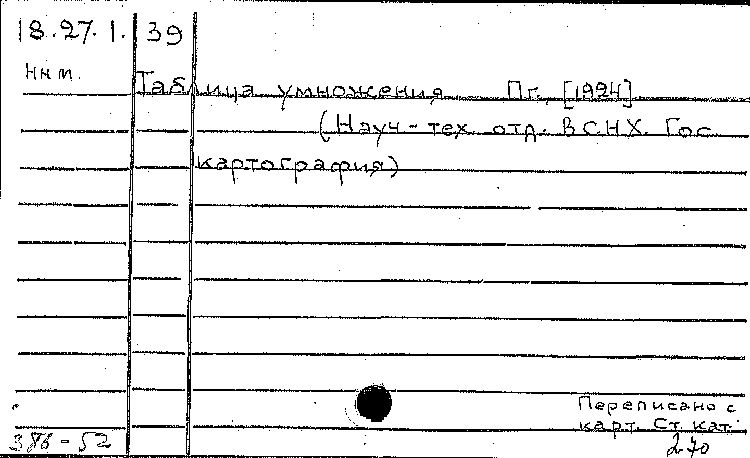 18.27.1. 39
Ннт.
Таблица умножения Пг. [1924]
(Науч-тех. отд. ВСНХ. Гос.
картография)
Переписано с
карт. Ст. кат.
386-52
270